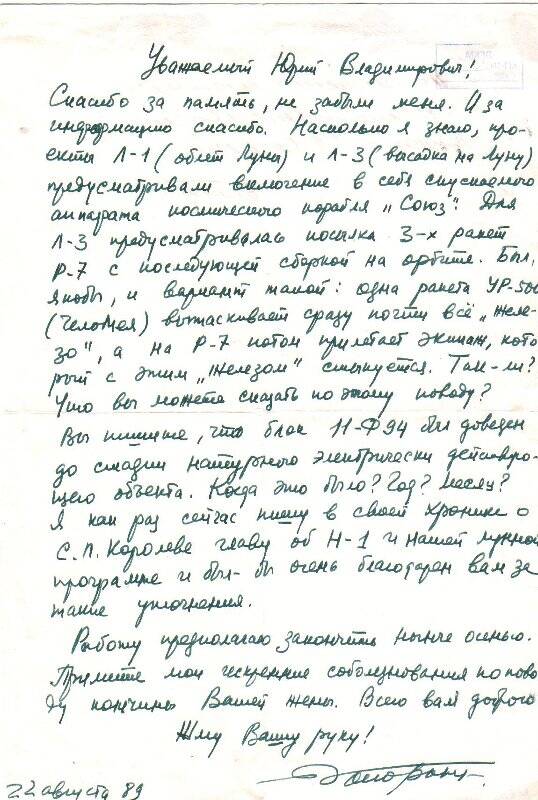 Уважаемый Юрий Владимирович!
Спасибо за память, не забыли меня. И за
информацию спасибо. Насколько я знаю, про-
екты Л-1 (облет Луны) и Л-3 (высадка на Луну)
предусматривали включение в себя спускаемого
аппарата космического корабля „Союз". Для
Л-3 предусматривалась посылка 3-х ракет
Р-7 с последующей сборкой на орбите. Был,
якобы, и вариант такой: одна ракета УР-500
(Челомея) вытаскивает сразу почти всё „желе-
зо", а на Р-7 потом прилетает экипаж, кото
рый с этим „железом" стыкуется. Так-ли?
Что вы можете сказать по этому поводу?
Вы пишите, что блок 11-Ф94 был доведен
до стадии натурного электрически действую-
щего объекта. Когда это было? Год? Месяц?
Я как раз сейчас пишу в своей хронике о
С.П. Королеве главу об Н-1 и нашей лунной
программе и был-бы очень благодарен вам за
такие уточнения.
Работу предполагаю закончить нынче осенью.
Примите мои искренние соболезнования по пово
ду кончины Вашей жены. Всего вам доброго
Жму Вашу руку!
22 августа 89